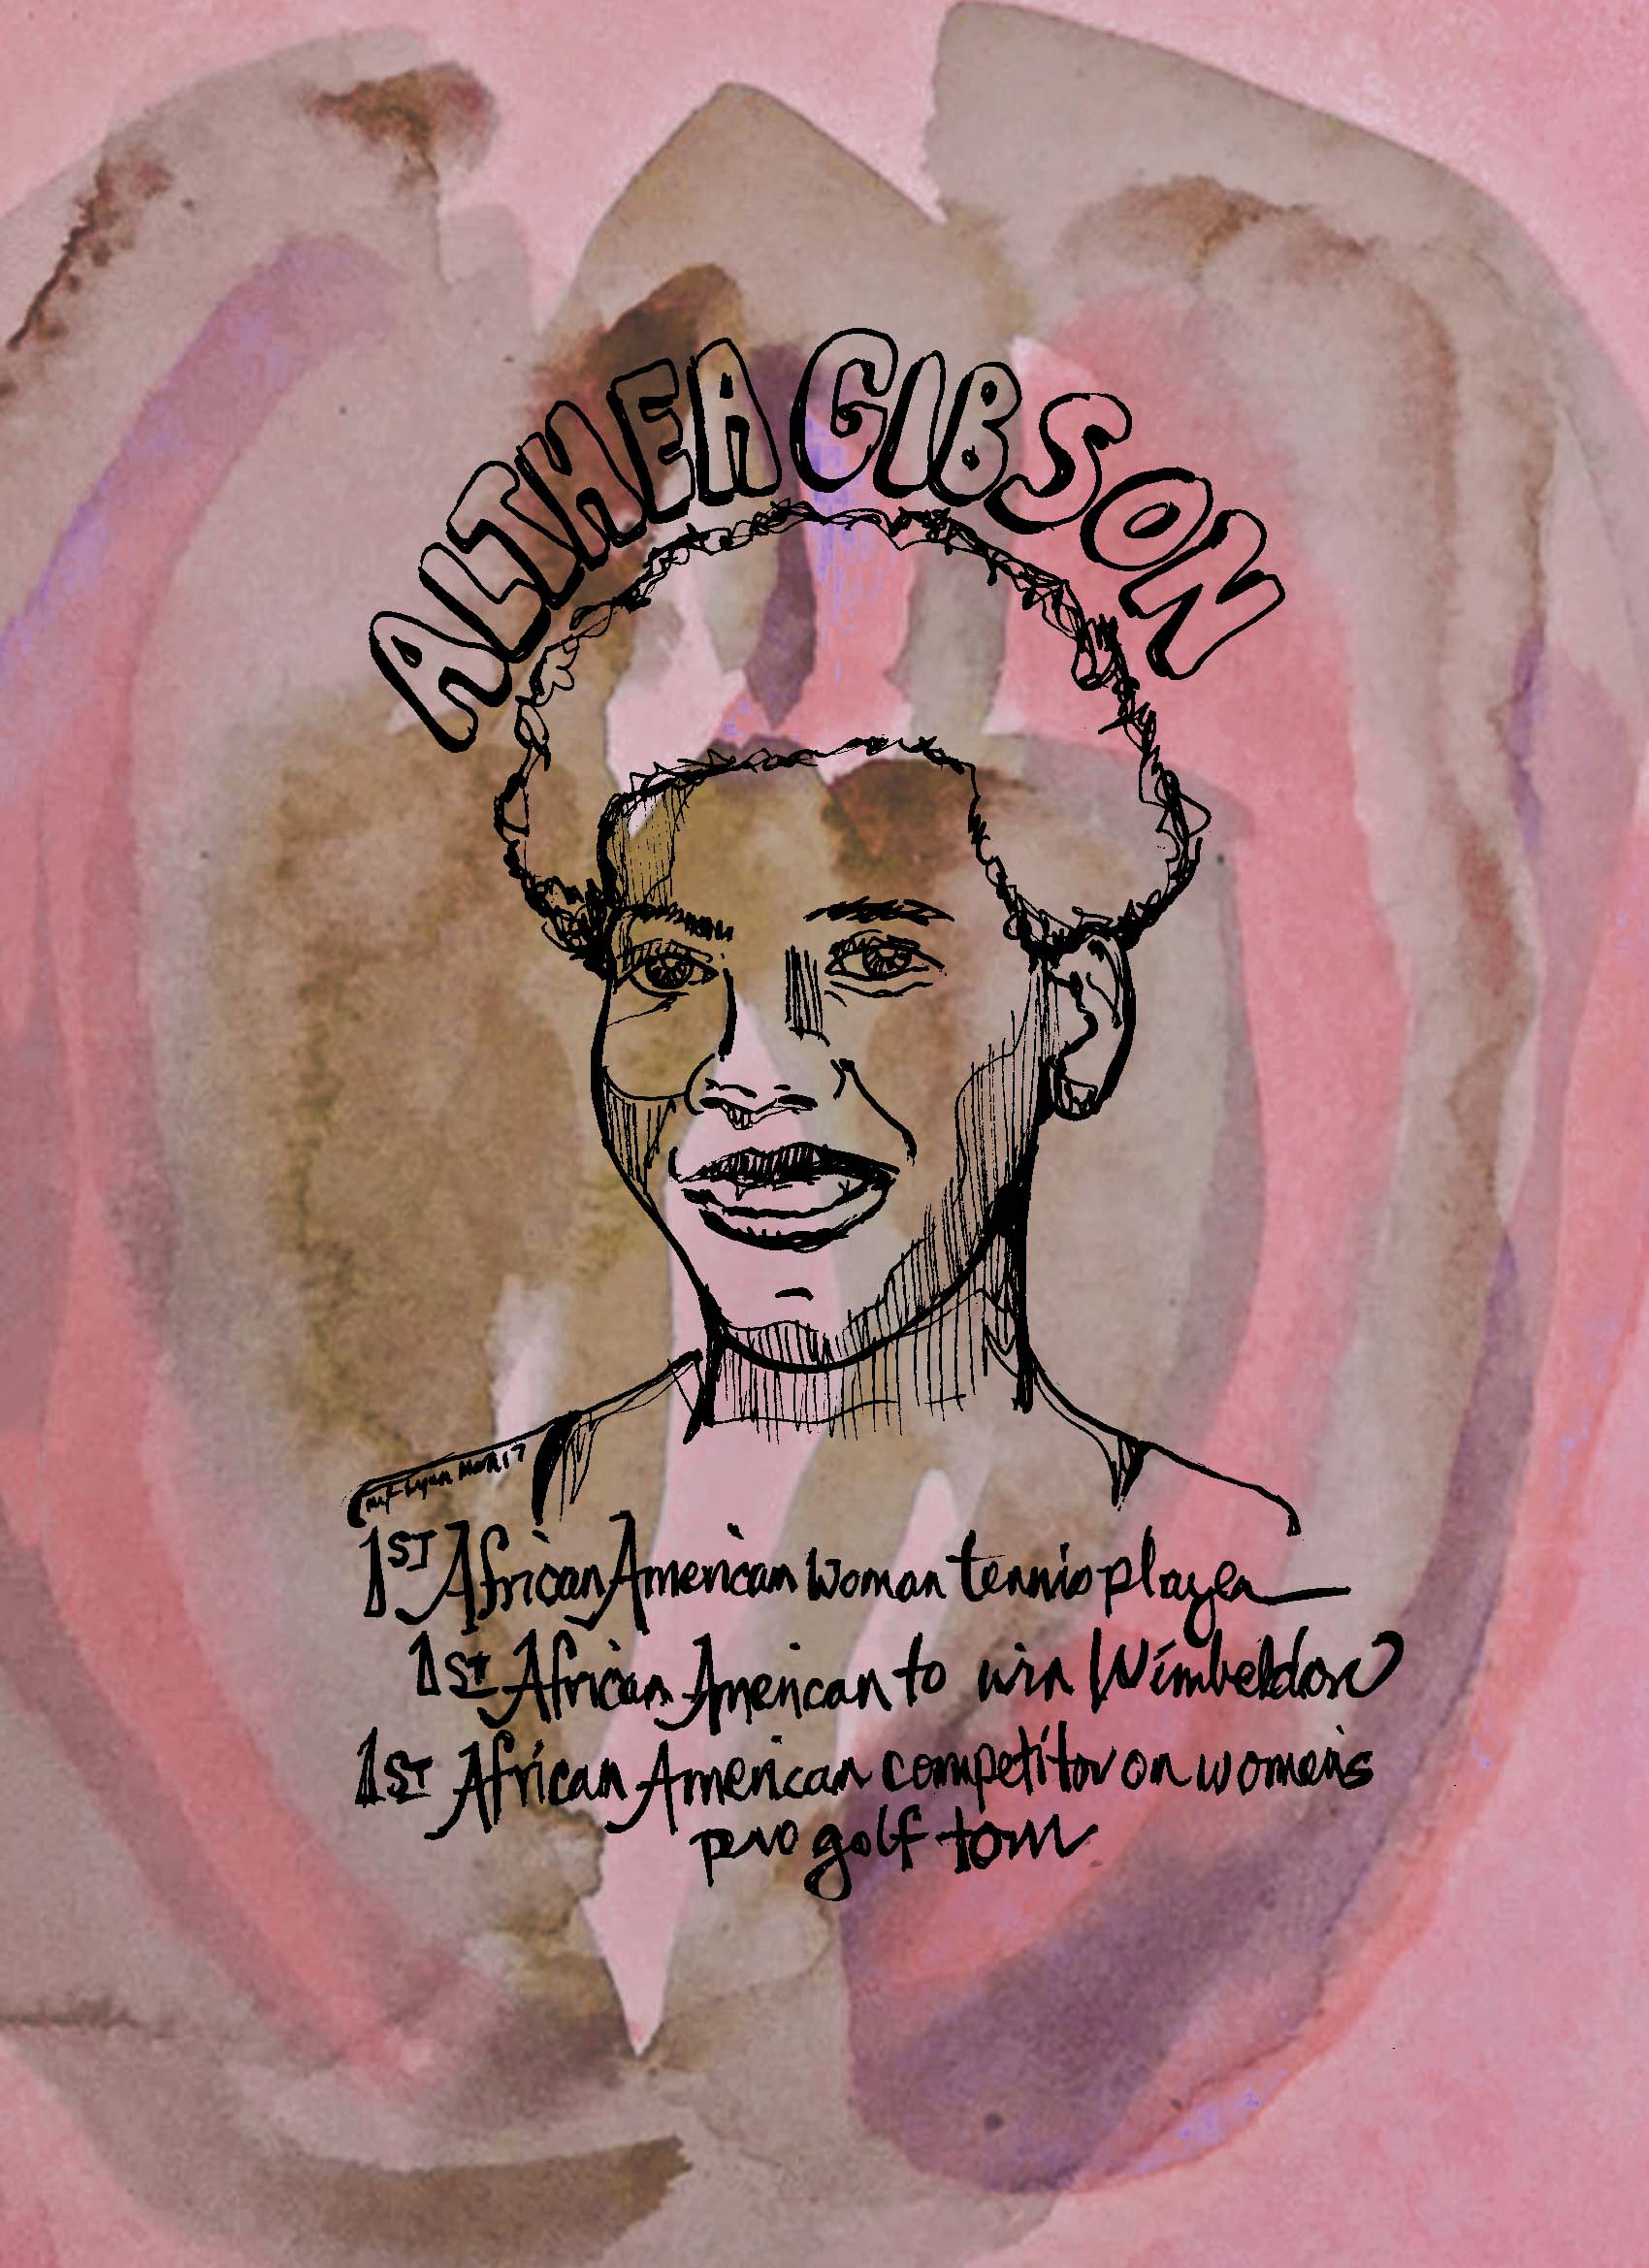 ALTHEA GIBSON
Lynn Mar 17
1ST African American Woman tennis player
1ST African American to win Wimbeldon
1ST African American competitor on women's
pro golf tour